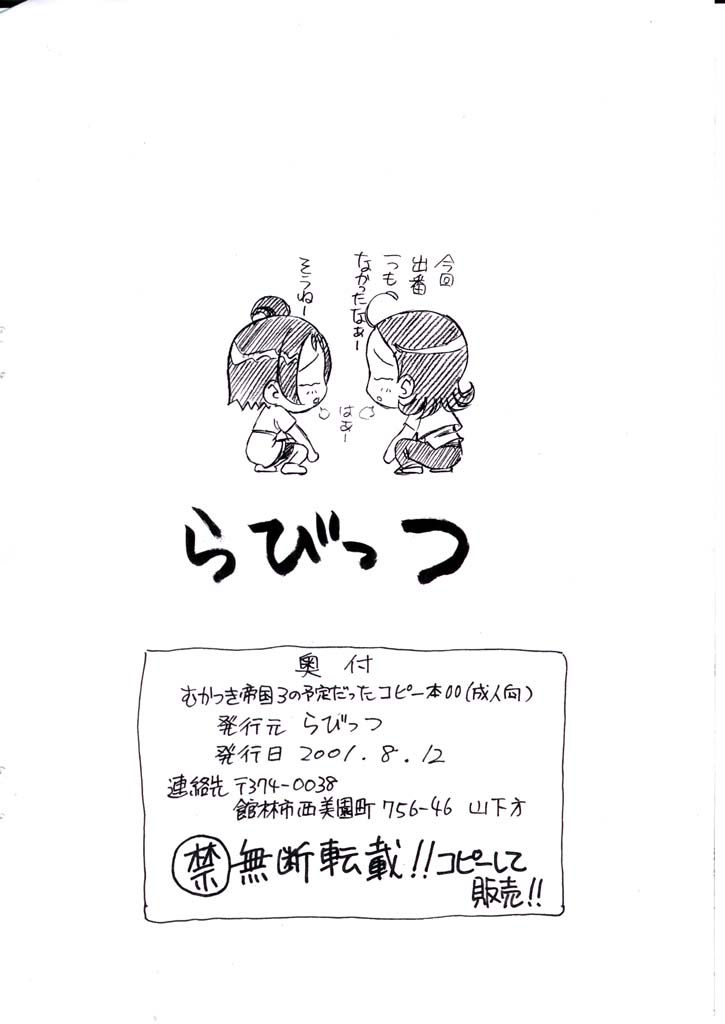 今回
出番
一つも
なかったなぁー
そうねー
はぁー
らびっつ
奥付
むかつき帝国3の予定だったコピー本00(成人向)
発行元 らびっつ
発行日 2001.8.12
連絡先 〒374-0038
館林市西美園町756-46 山下方
禁 無断転載!!コピーして
販売!!